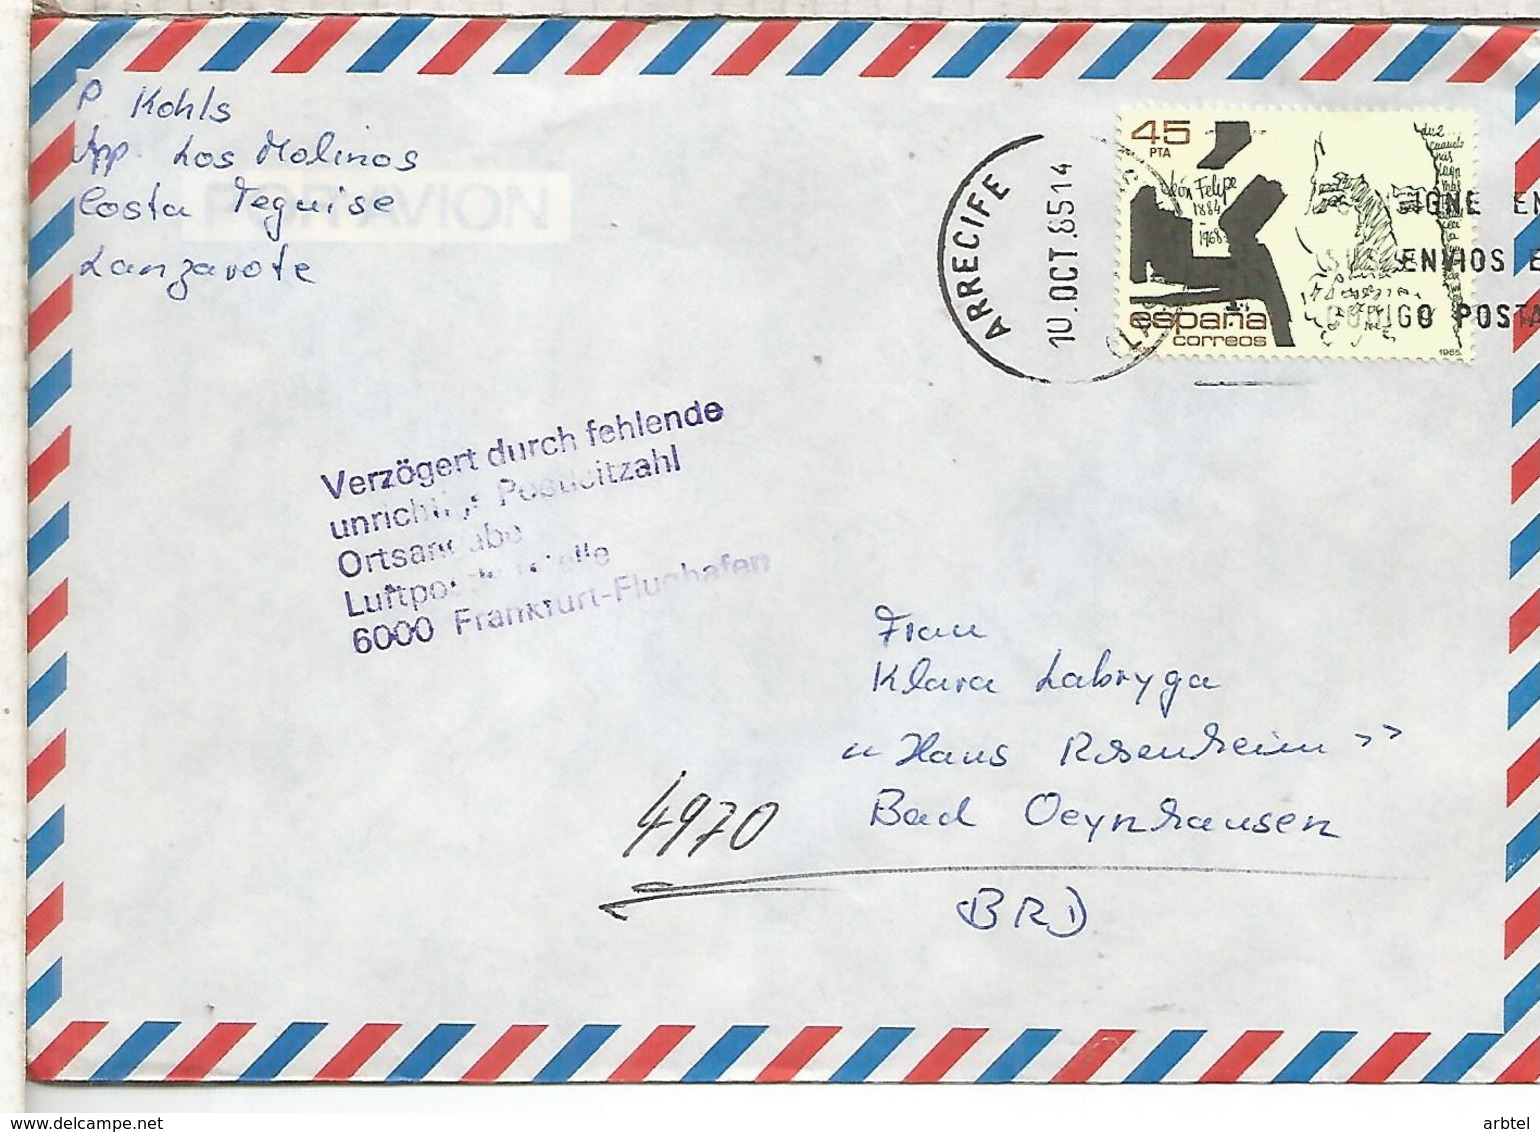 P. Kohls
App. Los Molinos
Costa Teguise
Lanzarote
POR AVION
ARRECIFE
10.OCT.85 14
45
PTA
León Felipe
1884
-
1968
españa
correos
1985
IGNE EN
SUS ENVIOS E
CODIGO POSTA
Verzögert durch fehlende
unrichtige Postleitzahl
Ortsangabe
6000 Frankfurt-Flughafen
Frau
Klara Labryga
"Haus Rosenheim"
Bad Oeynhausen
4970
BRD
delcampe.net
arbtel